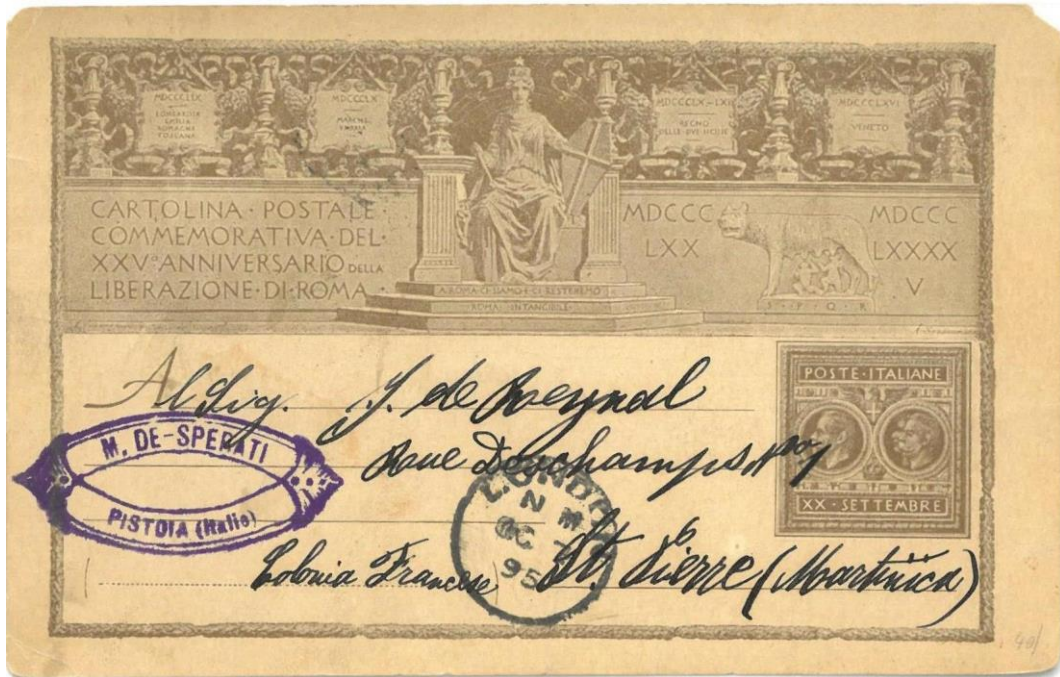 MDCCCLIX
LOMBARDIA
EMILIA
ROMAGNA
TOSCANA
MDCCCLX
MARCHE
UMBRIA
MDCCCLX-LXI
REGNO
DELLE DUE SICILIE
MDCCCLXVI
VENETO
CARTOLINA · POSTALE
COMMEMORATIVA · DEL
XXVº ANNIVERSARIO DELLA
LIBERAZIONE · DI · ROMA
A ROMA CI SIAMO E CI RESTEREMO
ROMA INTANGIBILE
MDCCC
LXX
S · P · Q · R
MDCCC
LXXXX
V
POSTE · ITALIANE
XX · SETTEMBRE
Al Sig. J. de Reynal
Rue Deschamps
St. Pierre (Martinica)
Colonia Francese
M. DE-SPERATI
PISTOIA (Italie)
LONDON
N M
OC 7
95